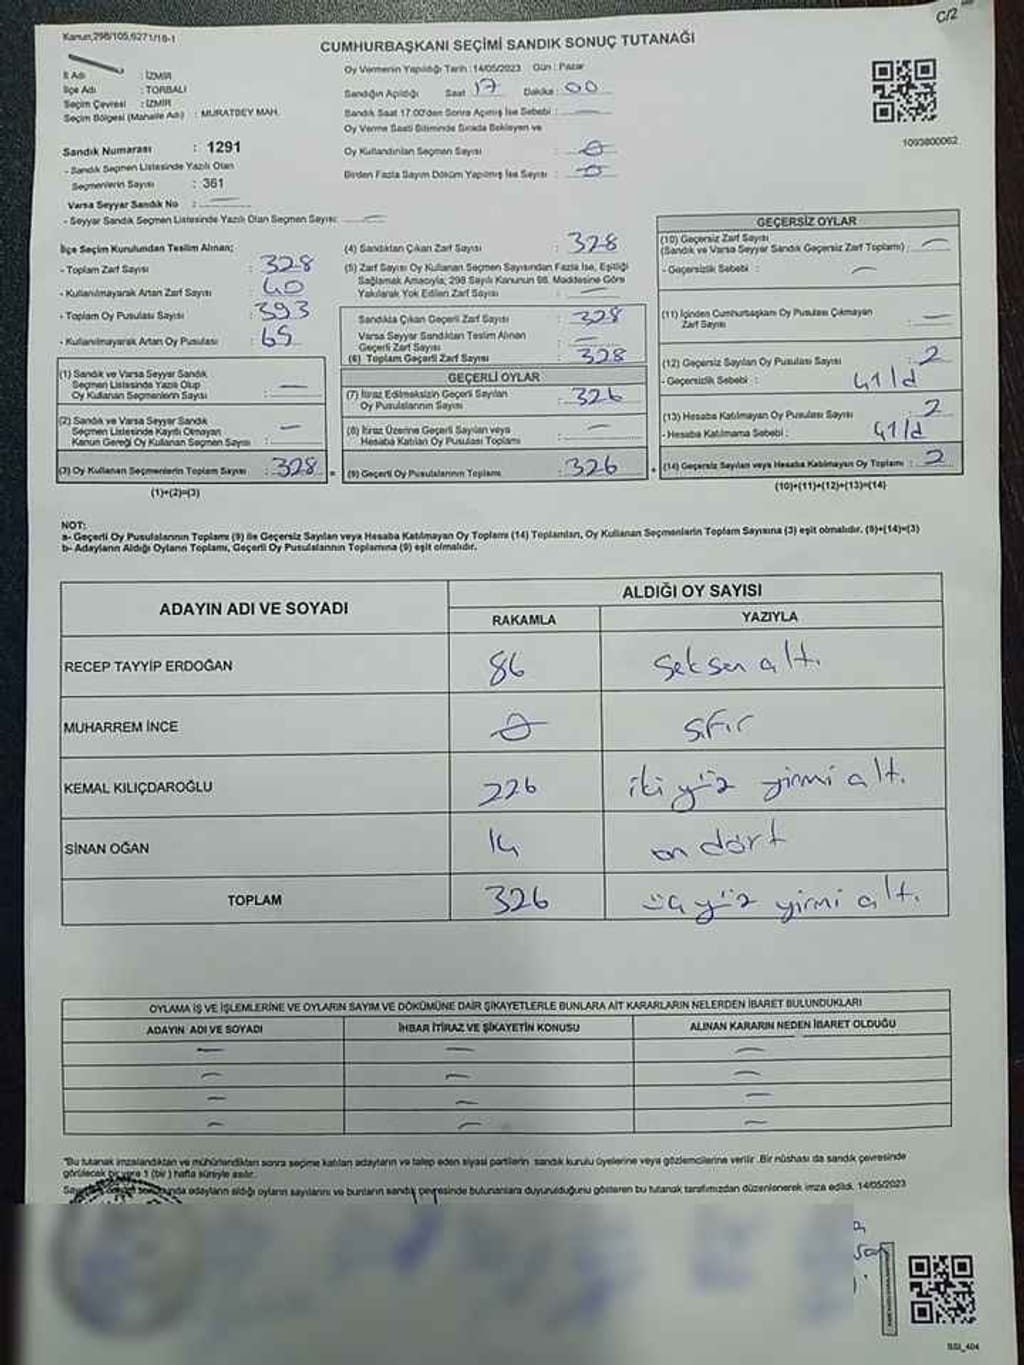 C/2
Kanun,298/105,6271/18-1
CUMHURBAŞKANI SEÇİMİ SANDIK SONUÇ TUTANAĞI
İl Adı : İZMİR
İlçe Adı : TORBALI
Seçim Çevresi : İZMİR
Seçim Bölgesi (Mahalle Adı) : MURATBEY MAH.
Oy Vermenin Yapıldığı Tarih : 14/05/2023 Gün : Pazar
Sandığın Açıldığı Saat 17 Dakika : 00
Sandık Saat 17:00'den Sonra Açılmış İse Sebebi : —
Oy Verme Saati Bitiminde Sırada Bekleyen ve
Oy Kullandırılan Seçmen Sayısı : 0
Birden Fazla Sayım Döküm Yapılmış İse Sayısı : 0
1093800062
Sandık Numarası : 1291
- Sandık Seçmen Listesinde Yazılı Olan
Seçmenlerin Sayısı : 361
Varsa Seyyar Sandık No : —
- Seyyar Sandık Seçmen Listesinde Yazılı Olan Seçmen Sayısı: —
İlçe Seçim Kurulundan Teslim Alınan;
- Toplam Zarf Sayısı : 328
- Kullanılmayarak Artan Zarf Sayısı : 40
- Toplam Oy Pusulası Sayısı : 393
- Kullanılmayarak Artan Oy Pusulası : 65
(1) Sandık ve Varsa Seyyar Sandık
Seçmen Listesinde Yazılı Olup
Oy Kullanan Seçmenlerin Sayısı : —
(2) Sandık ve Varsa Seyyar Sandık
Seçmen Listesinde Kayıtlı Olmayan
Kanun Gereği Oy Kullanan Seçmen Sayısı : —
(3) Oy Kullanan Seçmenlerin Toplam Sayısı : 328 =
(1)+(2)=(3)
(4) Sandıktan Çıkan Zarf Sayısı : 328
(5) Zarf Sayısı Oy Kullanan Seçmen Sayısından Fazla İse, Eşitliği
Sağlamak Amacıyla, 298 Sayılı Kanunun 98. Maddesine Göre
Yakılarak Yok Edilen Zarf Sayısı : —
Sandıkta Çıkan Geçerli Zarf Sayısı : 328
Varsa Seyyar Sandıktan Teslim Alınan
Geçerli Zarf Sayısı : —
(6) Toplam Geçerli Zarf Sayısı : 328
GEÇERLİ OYLAR
(7) İtiraz Edilmeksizin Geçerli Sayılan
Oy Pusulalarının Sayısı : 326
(8) İtiraz Üzerine Geçerli Sayılan veya
Hesaba Katılan Oy Pusulası Toplamı : —
(9) Geçerli Oy Pusulalarının Toplamı : 326 +
GEÇERSİZ OYLAR
(10) Geçersiz Zarf Sayısı
(Sandık ve Varsa Seyyar Sandık Geçersiz Zarf Toplamı) : —
- Geçersizlik Sebebi : —
(11) İçinden Cumhurbaşkanı Oy Pusulası Çıkmayan
Zarf Sayısı : —
(12) Geçersiz Sayılan Oy Pusulası Sayısı : 2
- Geçersizlik Sebebi : 41/d
(13) Hesaba Katılmayan Oy Pusulası Sayısı : 2
- Hesaba Katılmama Sebebi : 41/d
(14) Geçersiz Sayılan veya Hesaba Katılmayan Oy Toplamı : 2
(10)+(11)+(12)+(13)=(14)
NOT:
a- Geçerli Oy Pusulalarının Toplamı (9) ile Geçersiz Sayılan veya Hesaba Katılmayan Oy Toplamı (14) Toplamları, Oy Kullanan Seçmenlerin Toplam Sayısına (3) eşit olmalıdır. (9)+(14)=(3)
b- Adayların Aldığı Oyların Toplamı, Geçerli Oy Pusulalarının Toplamına (9) eşit olmalıdır.
ADAYIN ADI VE SOYADI
ALDIĞI OY SAYISI
RAKAMLA YAZIYLA
RECEP TAYYİP ERDOĞAN 86 Seksen altı
MUHARREM İNCE 0 sıfır
KEMAL KILIÇDAROĞLU 226 iki yüz yirmi altı
SİNAN OĞAN 14 on dört
TOPLAM 326 üç yüz yirmi altı
OYLAMA İŞ VE İŞLEMLERİNE VE OYLARIN SAYIM VE DÖKÜMÜNE DAİR ŞİKAYETLERLE BUNLARA AİT KARARLARIN NELERDEN İBARET BULUNDUKLARI
ADAYIN ADI VE SOYADI İHBAR İTİRAZ VE ŞİKAYETİN KONUSU ALINAN KARARIN NEDEN İBARET OLDUĞU
— — —
— — —
— — —
— — —
"Bu tutanak imzalandıktan ve mühürlendikten sonra seçime katılan adayların ve talep eden siyasi partilerin sandık kurulu üyelerine veya gözlemcilerine verilir. Bir nüshası da sandık çevresinde
görülecek bir yere 1 (bir) hafta süreyle asılır.
adayların aldığı oyların sayılarını ve bunların sandık çevresinde bulunanlara duyurulduğunu gösteren bu tutanak tarafımızdan düzenlenerek imza edildi. 14/05/2023
SSI_404